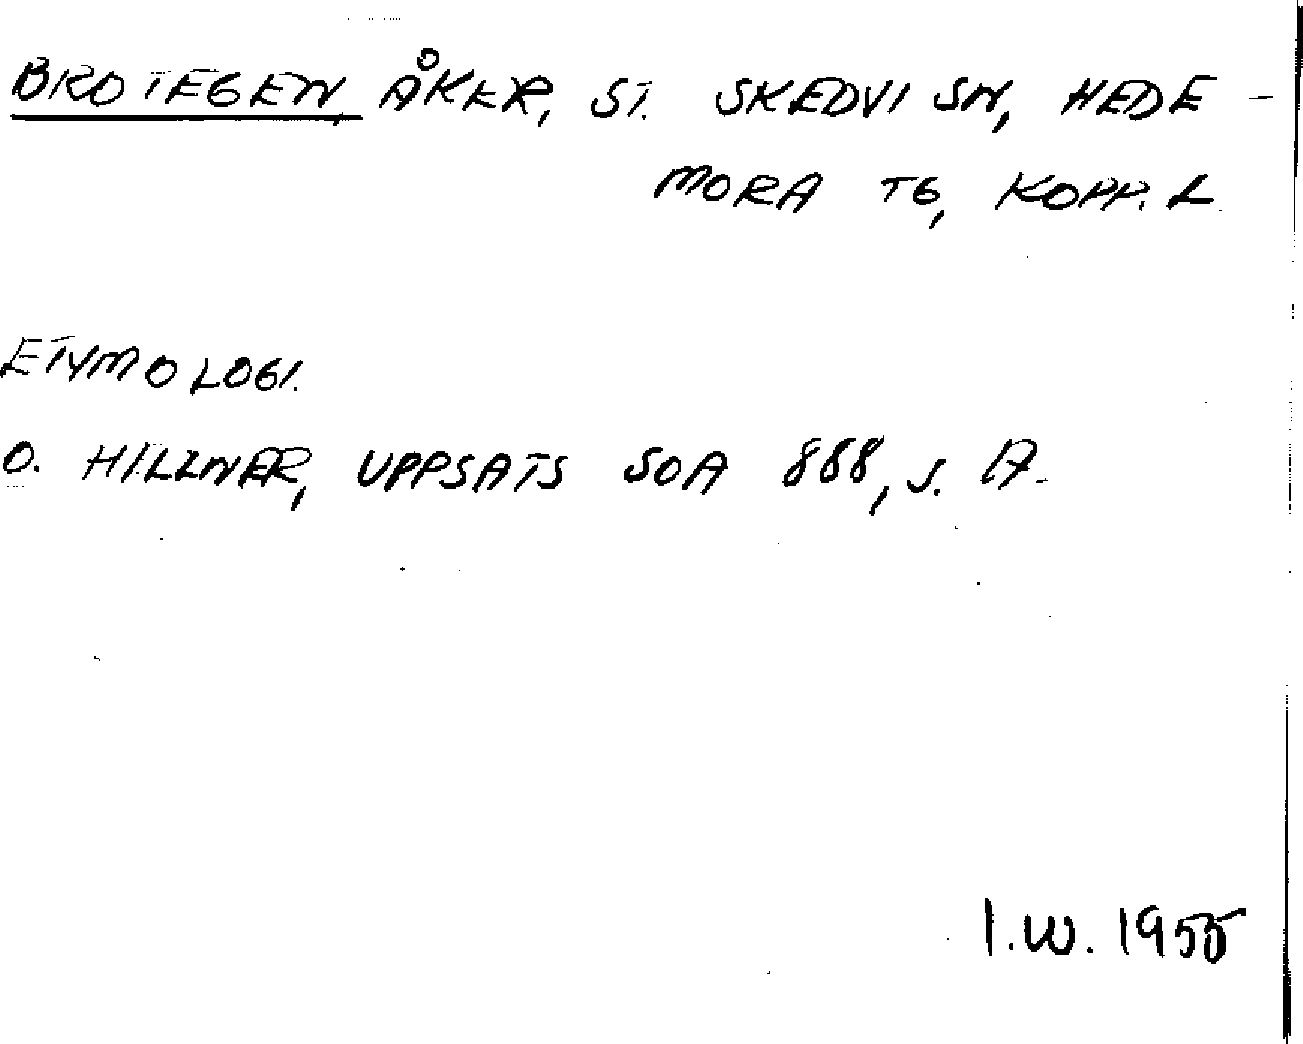 BROTEGEN, ÅKER, ST. SKEDVI SN, HEDE-
MORA TG, KOPP. L.
ETYMOLOGI.
O. HILLNER, UPPSATS SOA 888, S.
I.W. 1955